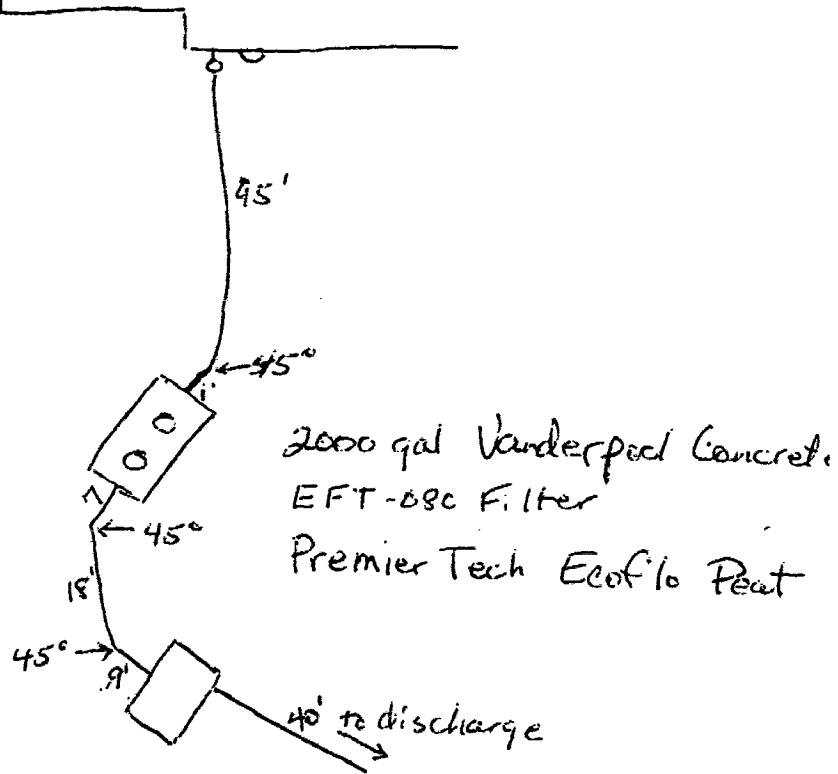 45°
1'
2000 gal Vanderpool Concrete
EFT-080 Filter
Premier Tech Ecoflo Peat
45°
18'
45°
9'
40' to discharge